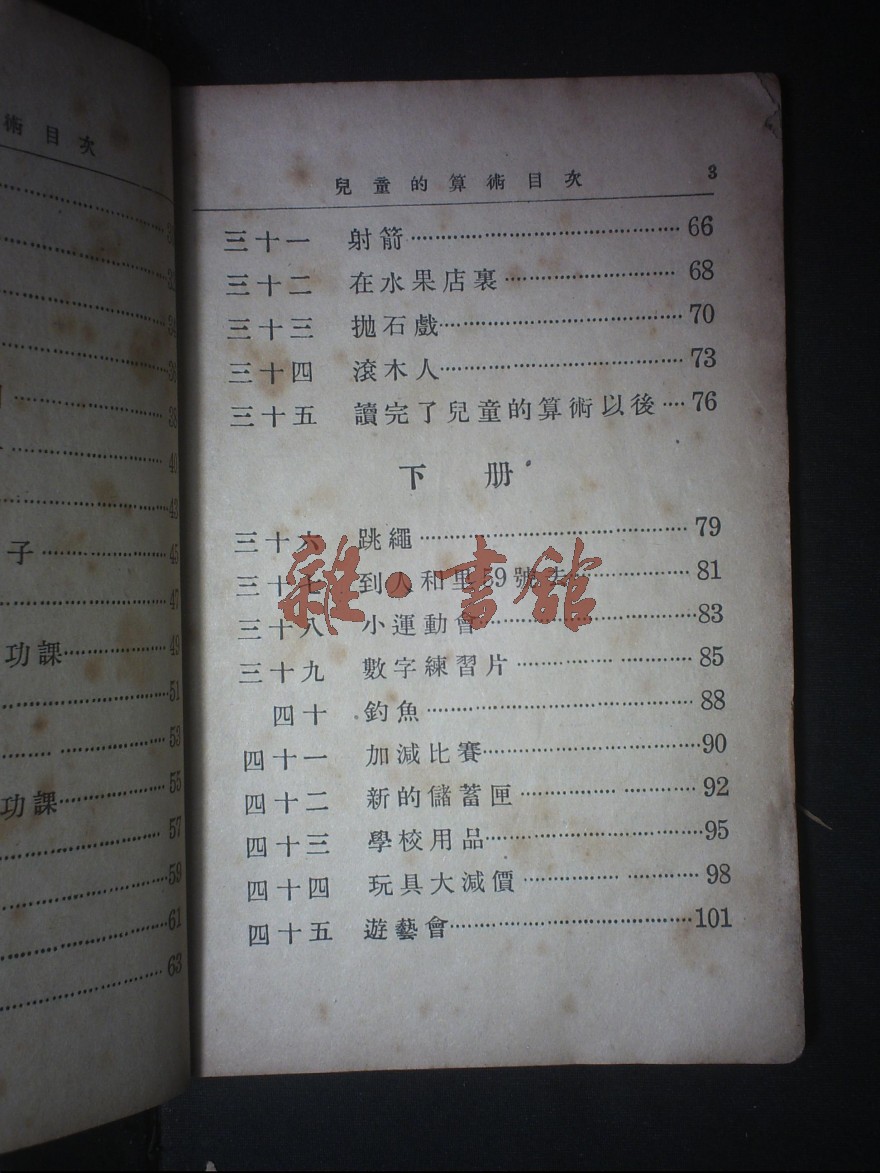 術目次
功課
49
51
53
功課
55
57
59
61
63
子
45
47
兒童的算術目次 3
三十一 射箭 66
三十二 在水果店裏 68
三十三 拋石戲 70
三十四 滾木人 73
三十五 讀完了兒童的算術以後 76
下册
三十六 跳繩 79
三十七 到人和里59號去 81
三十八 小運動會 83
三十九 數字練習片 85
四十 釣魚 88
四十一 加減比賽 90
四十二 新的儲蓄匣 92
四十三 學校用品 95
四十四 玩具大減價 98
四十五 遊藝會 101
雜·書館